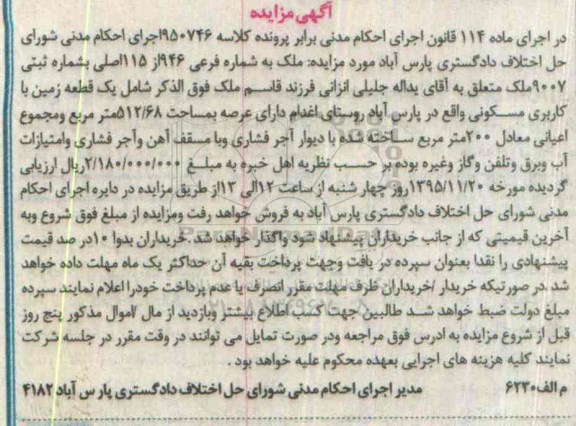 آگهی مزایده
در اجرای ماده ۱۱۴ قانون اجرای احکام مدنی برابر پرونده کلاسه ۹۵۰۷۴۶اجرای احکام مدنی شورای
حل اختلاف دادگستری پارس آباد مورد مزایده: ملک به شماره فرعی ۹۴۶از ۱۱۵اصلی بشماره ثبتی
۹۰۰۷ملک متعلق به آقای یداله جلیلی انزانی فرزند قاسم ملک فوق الذکر شامل یک قطعه زمین با
کاربری مسکونی واقع در پارس آباد روستای اغدام دارای عرصه بمساحت ۵۱۲/۶۸متر مربع ومجموع
اعیانی معادل ۲۰۰متر مربع ساخته شده با دیوار آجر فشاری وبا مسقف آهن وآجر فشاری وامتیازات
آب وبرق وتلفن وگاز وغیره بوده بر حسب نظریه اهل خبره به مبلغ ۲/۱۸۰/۰۰۰/۰۰۰ریال ارزیابی
گردیده مورخه ۱۳۹۵/۱۱/۲۰روز چهار شنبه از ساعت ۱۲الی ۱۳از طریق مزایده در دایره اجرای احکام
مدنی شورای حل اختلاف دادگستری پارس آباد به فروش خواهد رفت ومزایده از مبلغ فوق شروع وبه
آخرین قیمیتی که از جانب خریداران پیشنهاد شود واگذار خواهد شد.خریداران بدوا ۱۰در صد قیمت
پیشنهادی را نقدا بعنوان سپرده در یافت وجهت پرداخت بقیه آن حداکثر یک ماه مهلت داده خواهد
شد .در صورتیکه خریدار /خریداران ظرف مهلت مقرر انصرف یا عدم پرداخت خودرا اعلام نمایند سپرده
مبلغ دولت ضبط خواهد شد طالبین جهت کسب اطلاع بیشتر وبازدید از مال /اموال مذکور پنج روز
قبل از شروع مزایده به ادرس فوق مراجعه ودر صورت تمایل می توانند در وقت مقرر در جلسه شرکت
نمایند کلیه هزینه های اجرایی بعهده محکوم علیه خواهد بود .
م الف۶۲۳۰ مدیر اجرای احکام مدنی شورای حل اختلاف دادگستری پارس آباد ۴۱۸۲